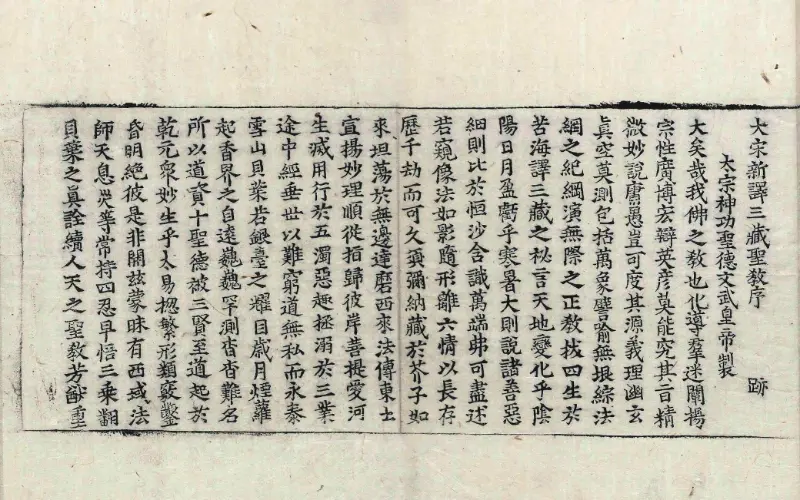 大宋新譯三藏聖教序
跡
太宗神功聖德文武皇帝製
大矣哉我佛之教也化導羣迷闡揚
宗性廣博宏辯英彥莫能究其旨精
微妙說庸愚豈可度其源義理幽玄
真空莫測包括萬象譬喻無垠綜法
網之紀綱演無際之正教拔四生於
苦海譯三藏之秘言天地變化乎陰
陽日月盈虧乎寒暑大則說諸善惡
細則比於恒沙含識萬端弗可盡述
若窺像法如影隨形離六情以長存
歷千劫而可久須彌納藏於芥子如
來坦蕩於無邊達磨西來法傳東土
宣揚妙理順從指歸彼岸菩提愛河
生滅用行於五濁惡趣拯溺於三業
途中經垂世以難窮道無私而永泰
雪山貝葉若銀臺之耀目歲月煙蘿
起香界之自遠巍巍罕測杳杳難名
所以道資十聖德被三賢至道起於
乾元衆妙生乎太易揔繁形類竅鑿
昏明絕彼是非開兹蒙昧有西域法
師天息災等常持四忍早悟三乘翻
貝葉之真詮續人天之聖教芳猷重